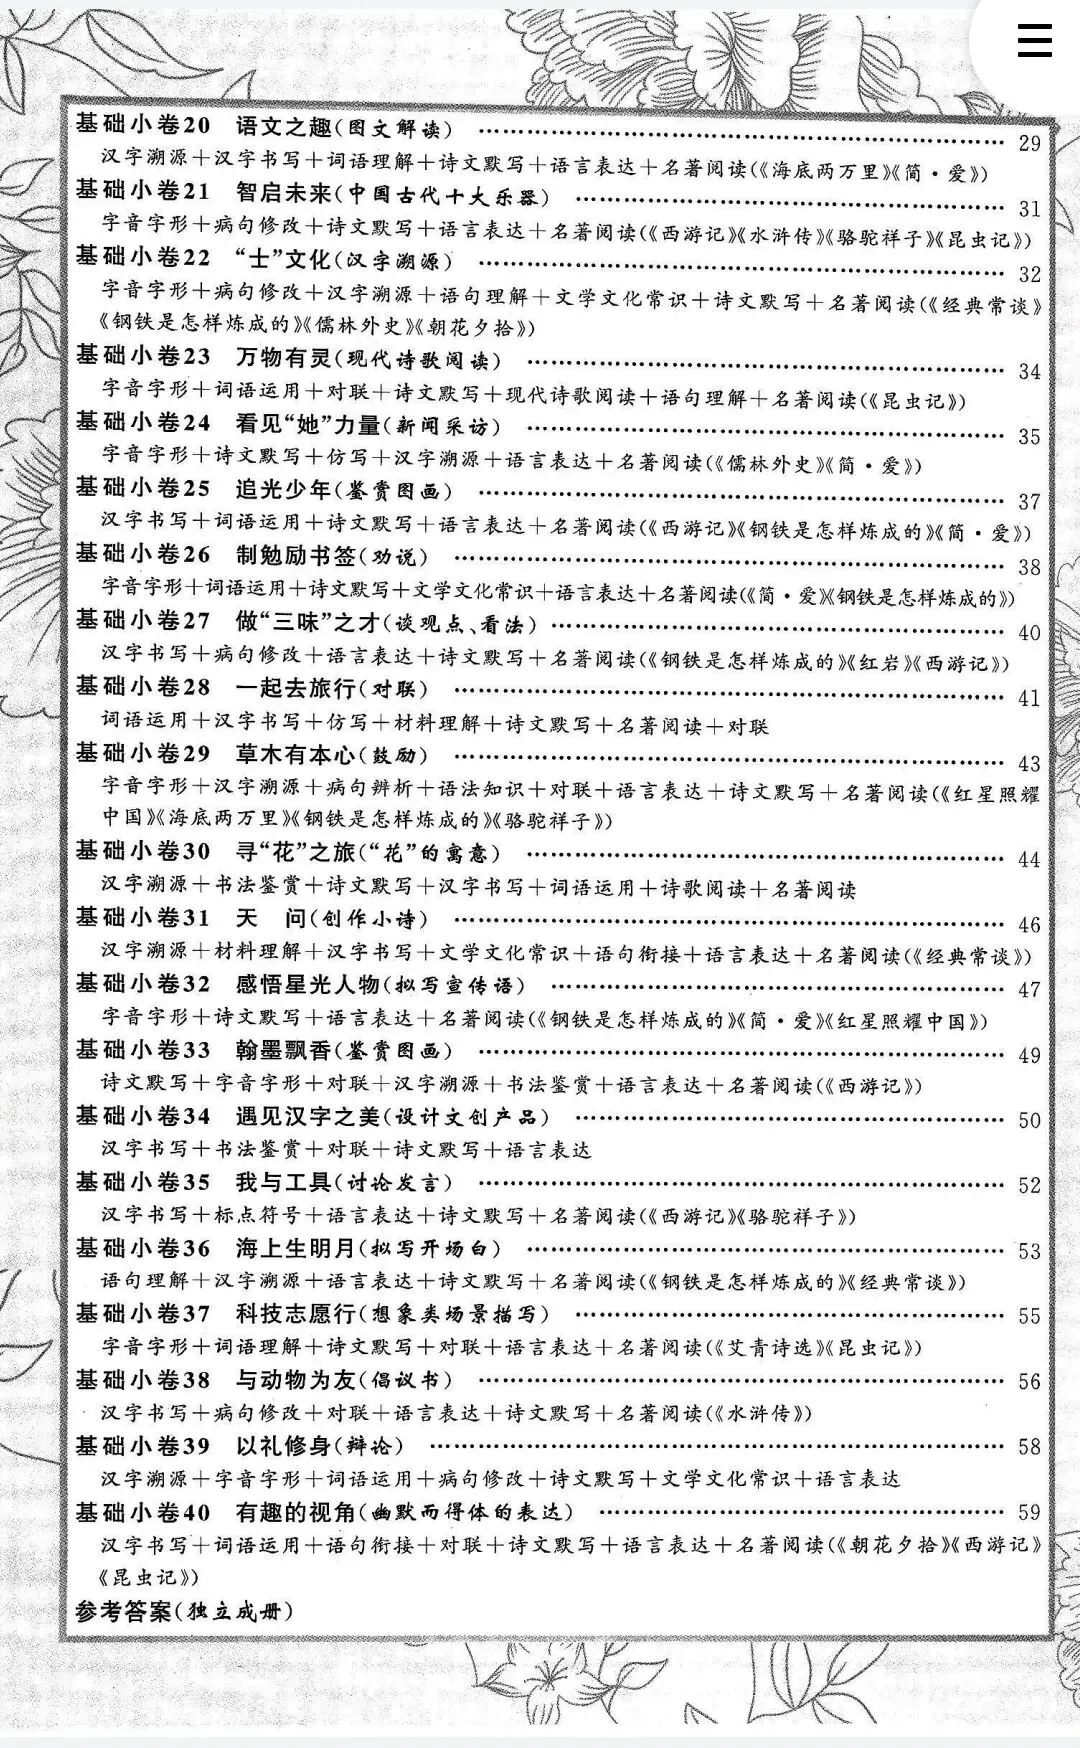 基础小卷20 语文之趣(图文解读) …… 29
汉字溯源+汉字书写+词语理解+诗文默写+语言表达+名著阅读(《海底两万里》《简·爱》)
基础小卷21 智启未来(中国古代十大乐器) …… 31
字音字形+病句修改+诗文默写+语言表达+名著阅读(《西游记》《水浒传》《骆驼祥子》《昆虫记》)
基础小卷22 “士”文化(汉字溯源) …… 32
字音字形+病句修改+汉字溯源+语句理解+文学文化常识+诗文默写+名著阅读(《经典常谈》
《钢铁是怎样炼成的》《儒林外史》《朝花夕拾》)
基础小卷23 万物有灵(现代诗歌阅读) …… 34
字音字形+词语运用+对联+诗文默写+现代诗歌阅读+语句理解+名著阅读(《昆虫记》)
基础小卷24 看见“她”力量(新闻采访) …… 35
字音字形+诗文默写+仿写+汉字溯源+语言表达+名著阅读(《儒林外史》《简·爱》)
基础小卷25 追光少年(鉴赏图画) …… 37
汉字书写+词语运用+诗文默写+语言表达+名著阅读(《西游记》《钢铁是怎样炼成的》《简·爱》)
基础小卷26 制勉励书签(劝说) …… 38
字音字形+词语运用+诗文默写+文学文化常识+语言表达+名著阅读(《简·爱》《钢铁是怎样炼成的》)
基础小卷27 做“三味”之才(谈观点、看法) …… 40
汉字书写+病句修改+语言表达+诗文默写+名著阅读(《钢铁是怎样炼成的》《红岩》《西游记》)
基础小卷28 一起去旅行(对联) …… 41
词语运用+汉字书写+仿写+材料理解+诗文默写+名著阅读+对联
基础小卷29 草木有本心(鼓励) …… 43
字音字形+汉字溯源+病句辨析+语法知识+对联+语言表达+诗文默写+名著阅读(《红星照耀
中国》《海底两万里》《钢铁是怎样炼成的》《骆驼祥子》)
基础小卷30 寻“花”之旅(“花”的寓意) …… 44
汉字溯源+书法鉴赏+诗文默写+汉字书写+词语运用+诗歌阅读+名著阅读
基础小卷31 天 问(创作小诗) …… 46
汉字溯源+材料理解+汉字书写+文学文化常识+语句衔接+语言表达+名著阅读(《经典常谈》)
基础小卷32 感悟星光人物(拟写宣传语) …… 47
字音字形+诗文默写+语言表达+名著阅读(《钢铁是怎样炼成的》《简·爱》《红星照耀中国》)
基础小卷33 翰墨飘香(鉴赏图画) …… 49
诗文默写+字音字形+对联+汉字溯源+书法鉴赏+语言表达+名著阅读(《西游记》)
基础小卷34 遇见汉字之美(设计文创产品) …… 50
汉字书写+书法鉴赏+对联+诗文默写+语言表达
基础小卷35 我与工具(讨论发言) …… 52
汉字书写+标点符号+语言表达+诗文默写+名著阅读(《西游记》《骆驼祥子》)
基础小卷36 海上生明月(拟写开场白) …… 53
语句理解+汉字溯源+语言表达+诗文默写+名著阅读(《钢铁是怎样炼成的》《经典常谈》)
基础小卷37 科技志愿行(想象类场景描写) …… 55
字音字形+词语理解+诗文默写+对联+语言表达+名著阅读(《艾青诗选》《昆虫记》)
基础小卷38 与动物为友(倡议书) …… 56
汉字书写+病句修改+对联+语言表达+诗文默写+名著阅读(《水浒传》)
基础小卷39 以礼修身(辩论) …… 58
汉字溯源+字音字形+词语运用+病句修改+诗文默写+文学文化常识+语言表达
基础小卷40 有趣的视角(幽默而得体的表达) …… 59
汉字书写+词语运用+语句衔接+对联+诗文默写+语言表达+名著阅读(《朝花夕拾》《西游记》
《昆虫记》)
参考答案(独立成册)